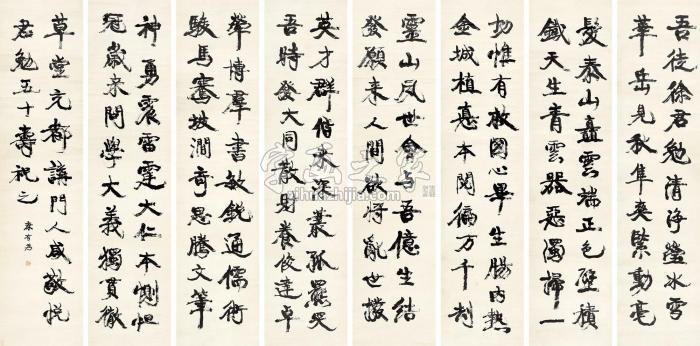 吾徒徐君勉清淨瑩冰雪
華岳見秋隼爽緊動毫
髮泰山矗雲端正色壁積
鐵天生青雲器惡濁掃一
切惟有救國心畢生腸内熱
金城植惪本閱徧万千刦
靈山夙世會与吾億生結
發願来人間欲将亂世撥
英才群偕来深叢孤羆
吾時發大同教財養俊達卓
犖博羣書敏銳通儒術
駿馬騫坡澗奇思騰文筆
神勇震雷霆大仁本惻怛
冠歲来問學大義獨貫徹
草堂充都講門人咸敬悅
君勉五十壽祝之
康有為
字画之家
zihuazhijia.com